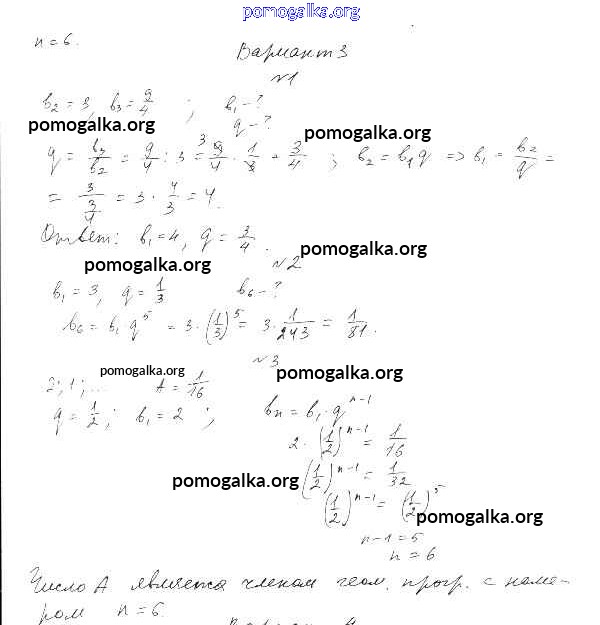 pomogalka.org
n = 6.
Вариант 3
№1
b₂ = 3, b₃ = 9/4 ; b₁ - ?
q - ?
pomogalka.org
pomogalka.org
q = b₃/b₂ = 9/4 : 3 = 9/4 · 1/3 = 3/4 ; b₂ = b₁q => b₁ = b₂/q =
= 3/(3/4) = 3 · 4/3 = 4.
Ответ: b₁ = 4, q = 3/4.
pomogalka.org
pomogalka.org
№2
b₁ = 3, q = 1/3 b₆ - ?
b₆ = b₁q⁵ = 3·(1/3)⁵ = 3·1/243 = 1/81.
№3
pomogalka.org
pomogalka.org
2; 1; ... A = 1/16
q = 1/2 ; b₁ = 2 ; bₙ = b₁·qⁿ⁻¹
2·(1/2)ⁿ⁻¹ = 1/16
pomogalka.org
(1/2)ⁿ⁻¹ = 1/32
(1/2)ⁿ⁻¹ = (1/2)⁵
pomogalka.org
n-1 = 5
n = 6
Число A является членом геом. прогр. с номе-
ром n = 6.